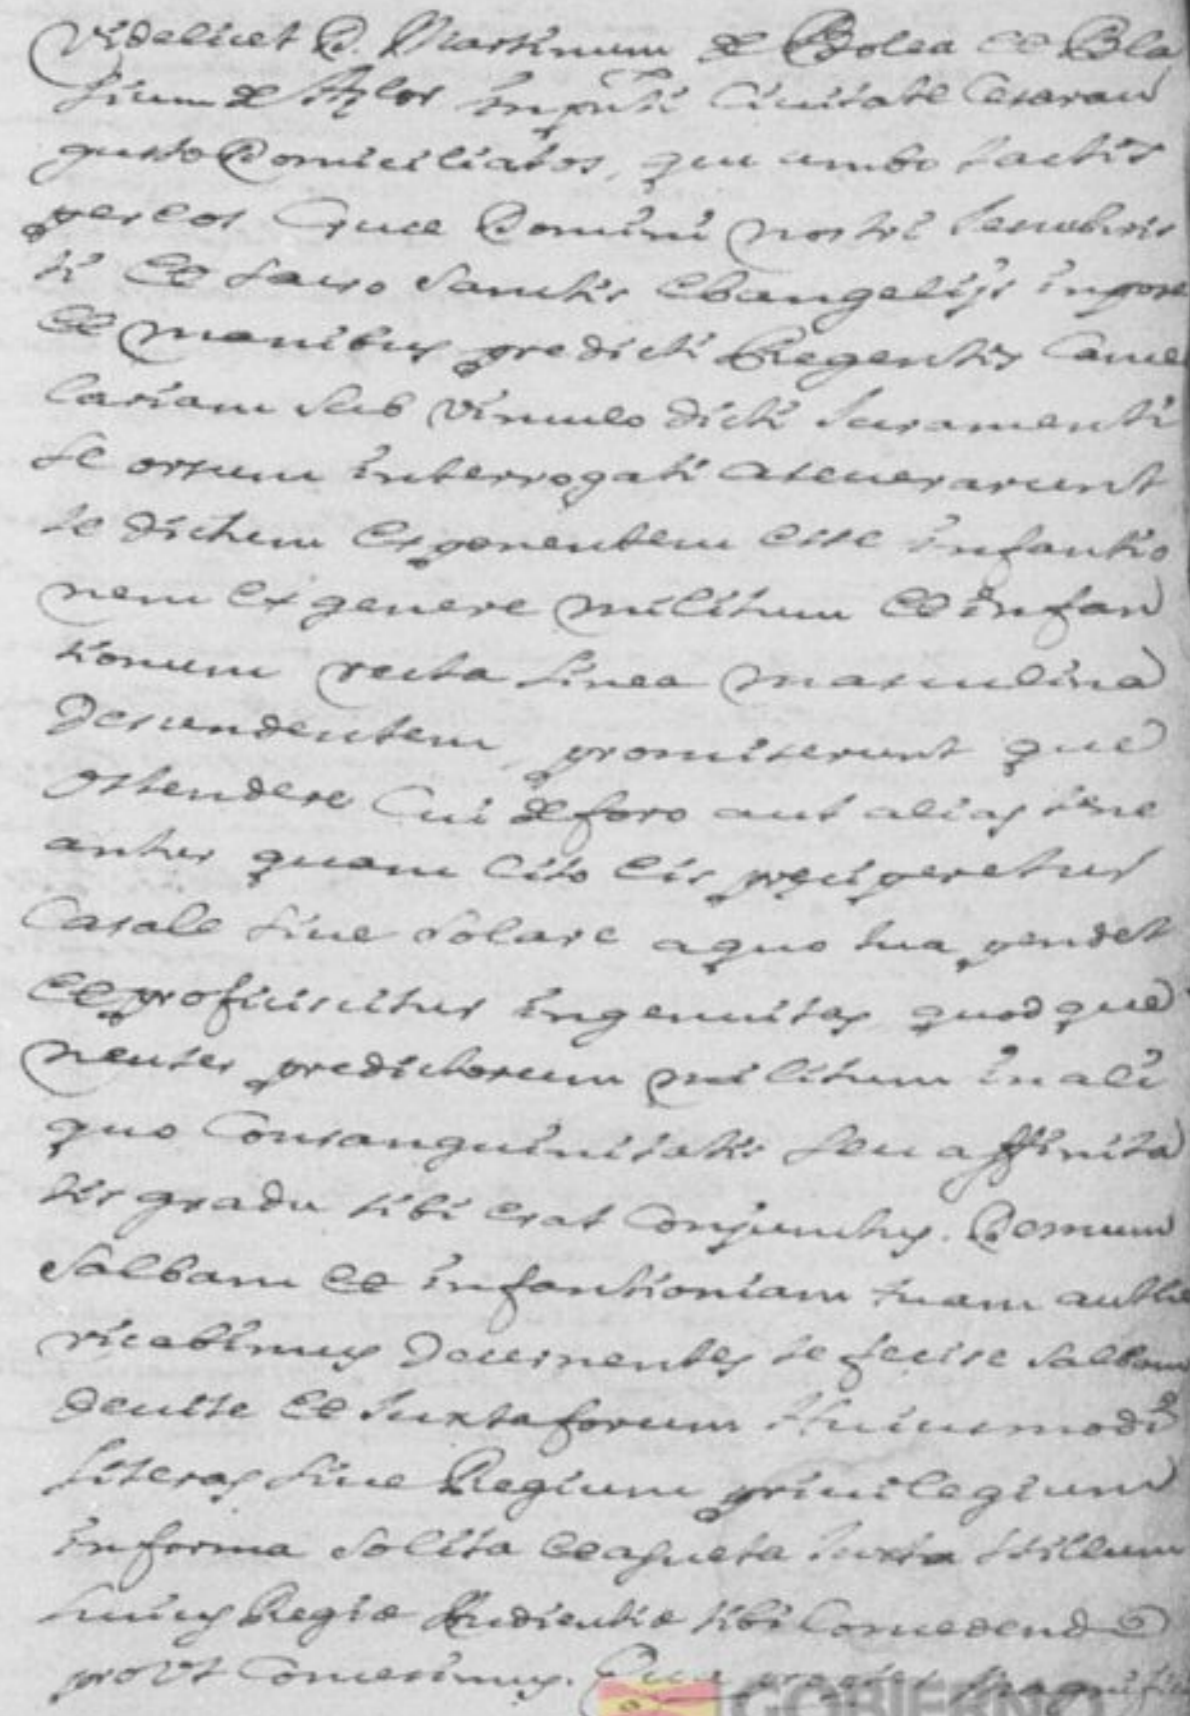 Videlicet D. Martinum de Bolea et Bla
sium de Azlor in pnti Civitate Cesarau
guste Domiciliatos, qui ambo tactis
per eos Cruce Domini nostri Jesuchris
ti et sacro Sanctis ebangelijs in posse
et manibus predicti Regentis Cance
lariam sub vinculo dicti Juramenti
se orsum interrogati aseuerarunt
te dictum exponentem esse infantio
nem ex genere militum et infan
tionum recta linea masculina
Descendentem, promiserunt que
ostendere Cui de foro aut alias tene
antur quam cito eis preciperetur
Casale siue solare a quo tua pendet
et proficiscitur ingenuitas quodque
neuter predictorum militum in ali
quo Consanguinitatis seu affinita
tis gradu tibi erat Conjunctus. Demum
Salbam et infantioniam tuam authe
ricabimus Decernentes te fecise Salbam
denite et Juxta forum Huiusmodi
literas siue Regium priuilegium
in forma solita et aqueta Juxta stillum
huius Regiæ Audientiæ tibi Concedendo
provt Concesimus. Que magnifi
GOBIERNO